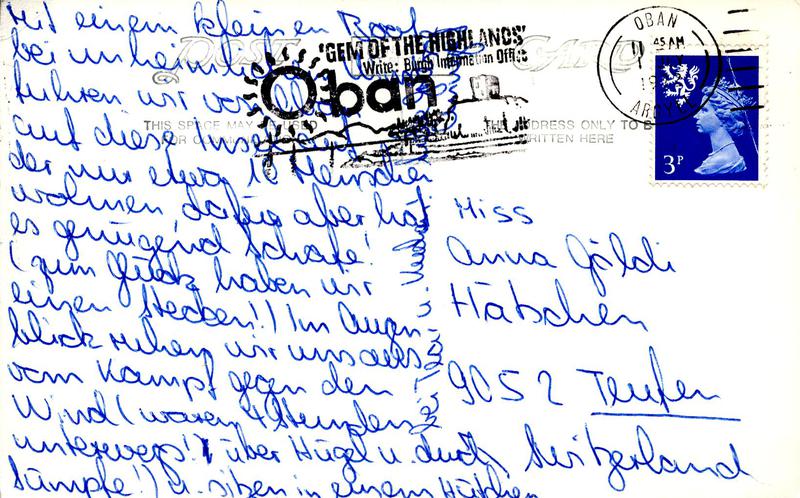 Mit einem kleinen Boot
bei unheimlich
fuhren wir von
auf diese Insel auf
der nur etwa 10 Menschen
wohnen, dafür aber hat
es genügend Schafe!
(zum Glück haben wir
einen Stecken!) Im Augen-
blick ruhen wir uns aus
vom Kampf gegen den
Wind (waren 4 Stunden
unterwegs!) über Hügel u. durch
Sümpfe!) u. sitzen in einem Hüttchen
POST CARD
THIS SPACE MAY BE USED
THE ADDRESS ONLY TO B
WRITTEN HERE
'GEM OF THE HIGHLANDS'
Write: Burgh Information Office
Oban
OBAN
45 AM
19
ARGYLL
3P
Miss
Anna Göldi
Hätschen
9052 Teufen
Switzerland